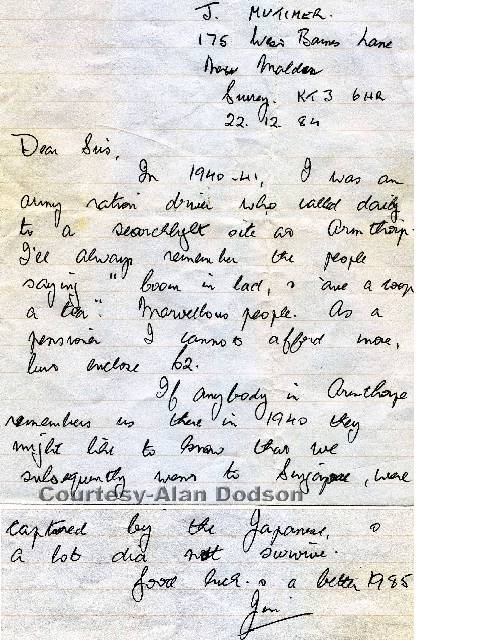 J. MUTIMER.
175 West Barnes Lane
New Malden
Surrey. KT3 6HR
22. 12 84
Dear Sirs,
In 1940-41, I was an
army ration driver who called daily
to a searchlight site at Armthorpe.
I'll always remember the people
saying "boom in lad, & 'ave a
a tea". Marvellous people. As a
pensioner I cannot afford more,
but enclose £2.
If anybody in Armthorpe
remembers us there in 1940 they
might like to know that we
subsequently went to Singapore, were
Courtesy-Alan Dodson
captured by the Japanese, &
a lot did not survive.
Good luck & a better 1985
Jim